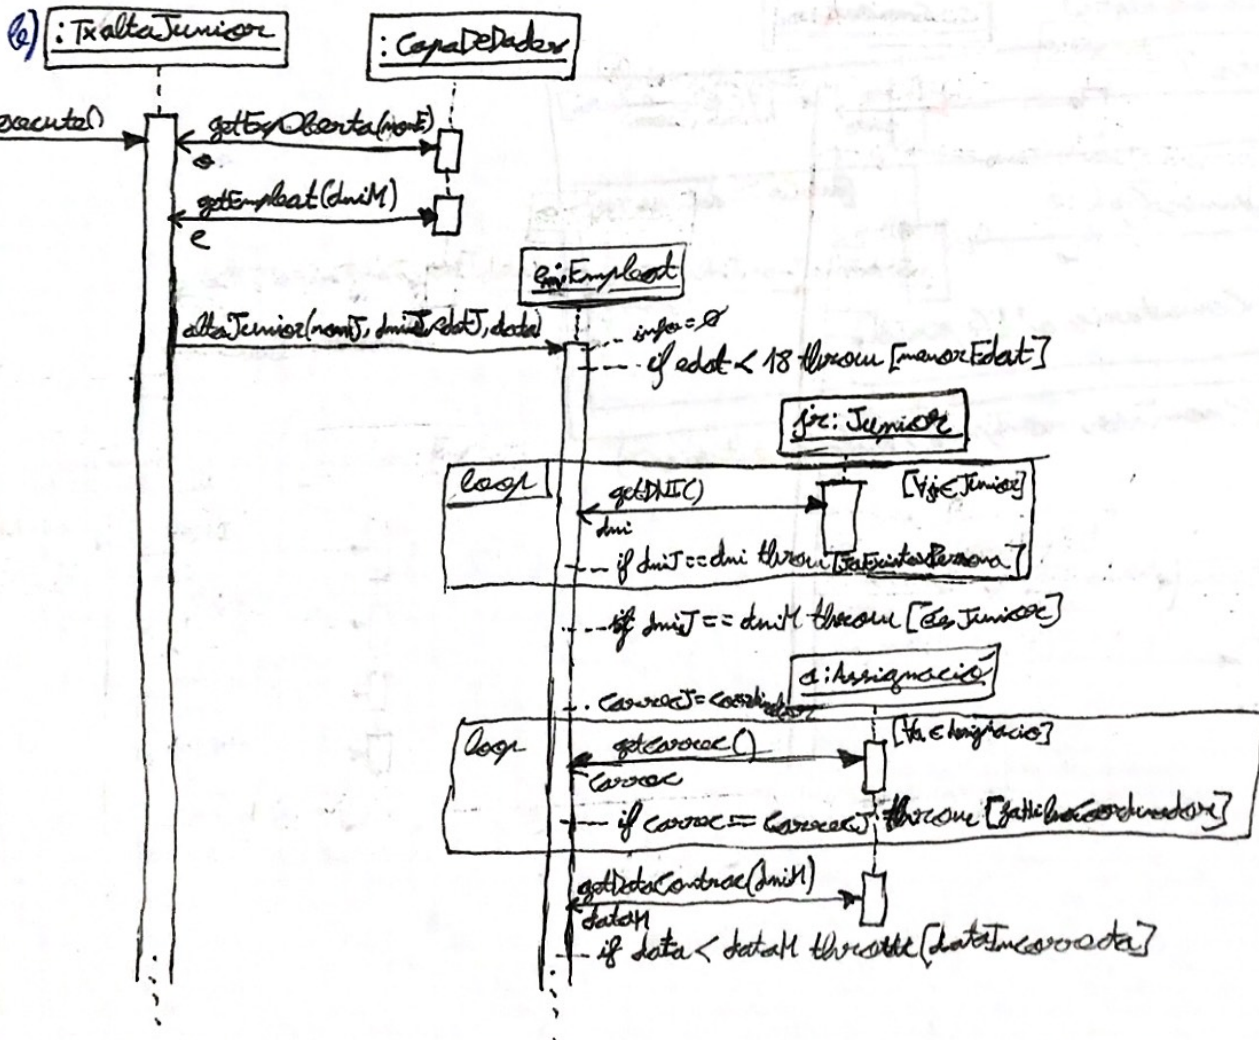 b) :TxaltaJunior
:CapaDeDades
execute()
getExpOberta(nomE)
e
getEmpleat(dniM)
e
:Empleat
altaJunior(nomJ, dniJ, edatJ, data)
info=Ø
if edat < 18 throw [menorEdat]
jr:Junior
loop
getDNI()
[∀j∈Junior]
dni
if dniJ==dni throw [JaExisteixPersona]
if dniJ == dniM throw [EsJunior]
a:Assignació
carrecJ=coordinador
loop
getcarrec()
[∀a∈Assignacio]
carrec
if carrec == carrecJ throw [jaHihaCoordinador]
getDataContrac(dniM)
dataM
if data < dataM throw [dataIncorrecta]